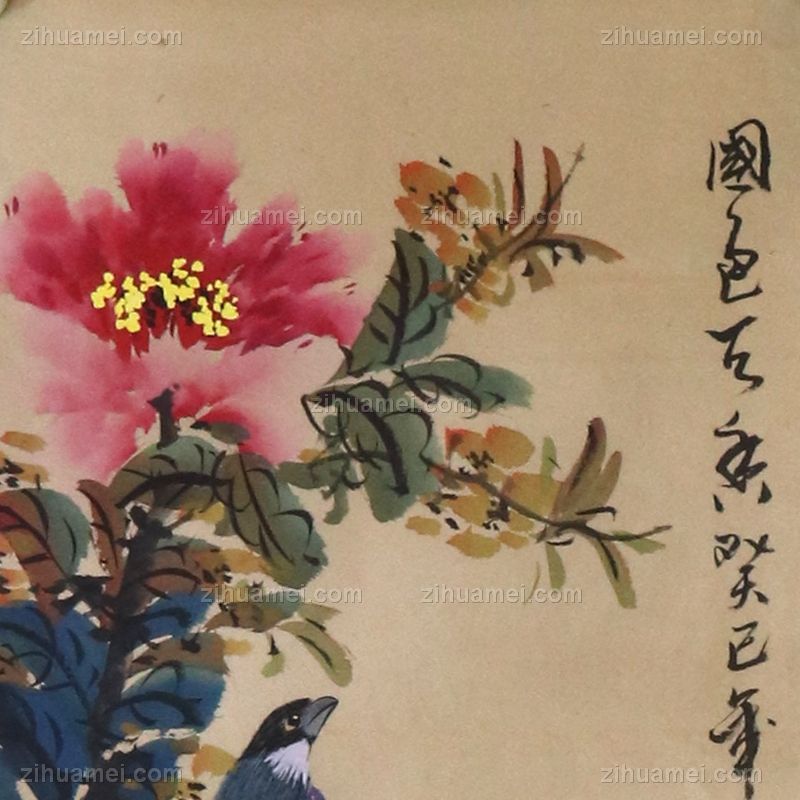 zihuamei.com
zihuamei.com
zihuamei.com
zihuamei.com
zihuamei.com
zihuamei.com
zihuamei.com
zihuamei.com
zihuamei.com
國色天香癸巳年